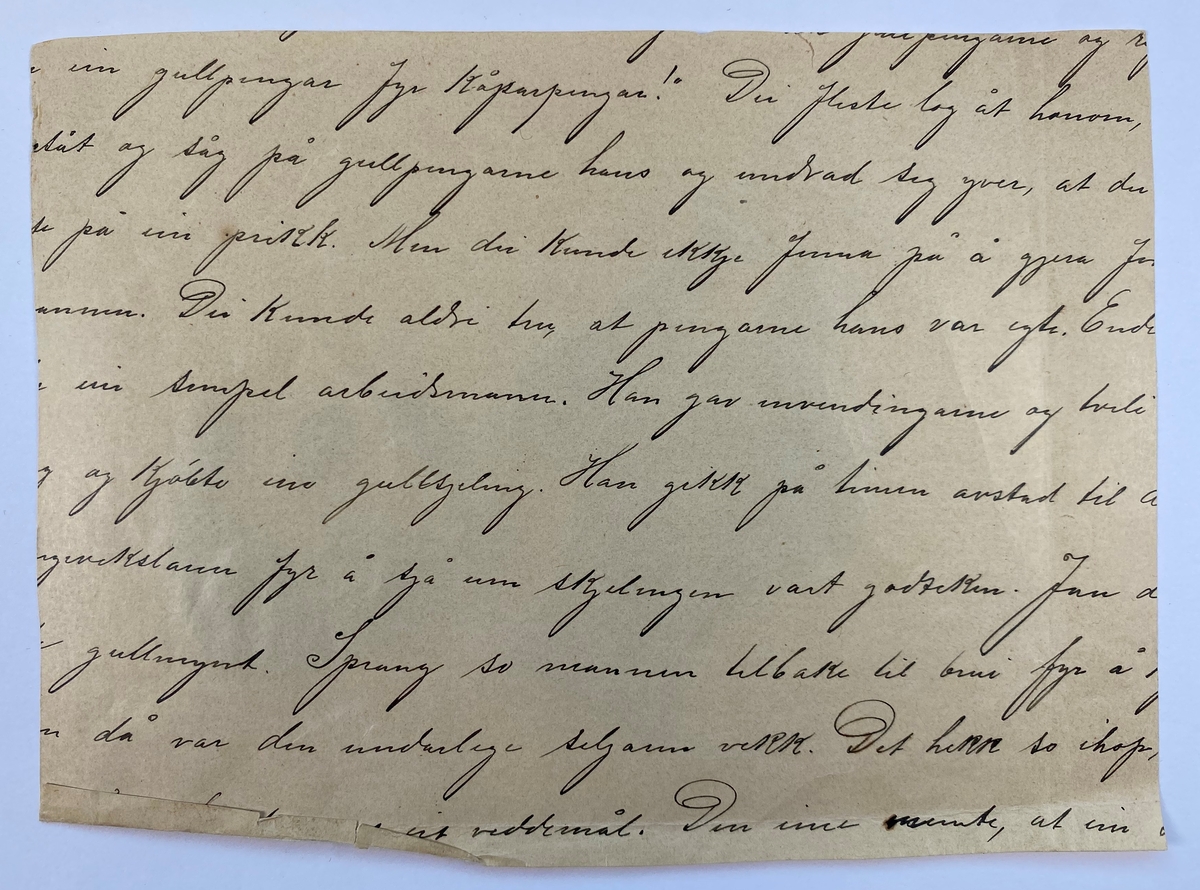 pengarne og
ein gullpengar fyr Kåparpengar!" Dei fleste log åt honom,
og såg på gullpengarne hans og undrad seg yver, at dei
på ein prikk. Men dei Kunde ikkje finna på å gjera
Dei Kunde aldri tru, at pengarne hans var egte. Ende
ein simpel arbeidsmann. Han gav invendingarne og tvili
og Kjöbte ein gullskjeling. Han gekk på timen avstad til
fyr å sjå um skjelingen vart godteken. Jau
gullmynt. Sprang so mannen tilbake til brui fyr å
då var den underlege seljaren vekk. Det hekk so ihop,
eit veddemål. Den eine meinte, at ein